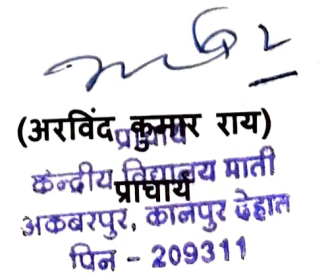 (अरविंद कुमार राय)
प्राचार्य
केन्द्रीय विद्यालय माती
प्राचार्य
अकबरपुर, कानपुर देहात
पिन - 209311